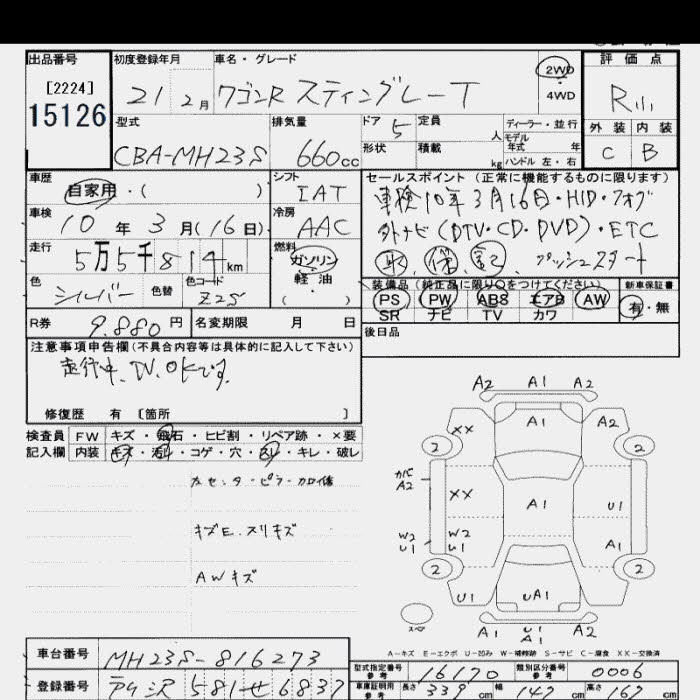 出品番号 初度登録年月 車名・グレード 2WD 評価点
[2224] 15126 21 2月 ワゴンR スティングレーT 4WD R
型式 排気量 ドア 定員 ディーラー・並行 外装 内装
CBA-MH23S 660cc 5 人 モデル年式 年 C B
形状 積載 kg ハンドル 左・右
車歴 シフト セールスポイント (正常に機能するものに限ります)
自家用・( ) IAT 車検10年3月16日・HID・フォグ
車検 冷房 外ナビ(DTV・CD・DVD)・ETC
10年3月(16日) AAC 取、保、記、プッシュスタート
走行 燃料
5万5千814km ガソリン
色 色替 色コード 軽油
シルバー Z2S ( )
装備品 (純正品に限り○をつけてください) 新車保証書
PS PW ABS エアB AW 有・無
SR ナビ TV カワ
R券 9.880円 名変期限 月 日 後日品
注意事項申告欄(不具合内容等は具体的に記入して下さい)
走行中、TV、OKです。
修復歴 有 [箇所 ]
検査員 FW キズ・飛石・ヒビ割・リペア跡・×要
記入欄 内装 キズ・汚れ・コゲ・穴・スレ・キレ・破レ
キズE.スリキズ
AWキズ
A2 A1 A2
XX A1 A2
2 2
カバ
A2
XX A1 U1
W2 W2 A1
U1 U1
2 2
U1 UA1
A2 A1 U1 A2
A-キズ E-エクボ U-凹み W-補修跡 S-サビ C-腐食 XX-交換済
車台番号 MH23S-816273
型式指定番号 参考 16170 類別区分番号 参考 0006
登録番号 581 せ 6837
車庫証明用 参考 長さ 339cm 幅 147cm 高さ 167cm